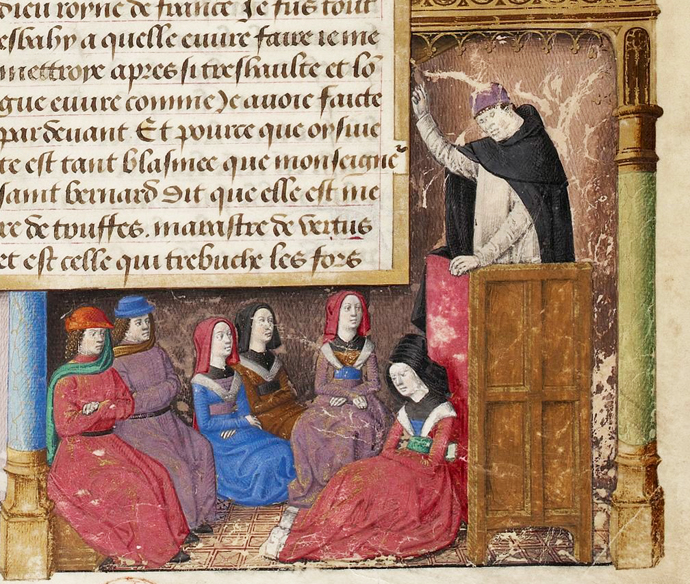 dieu royne de france Je fus tout
esbahy a quelle euure faire ie me
mettroye apres si treshaulte et lō
gue euure comme Je auoie faicte
par deuant. Et pource que oysiue
te est tant blasmee que monseigneʳ
saint bernard dit que elle est me
re de touffes. marastre de vertus
et est celle qui trebuche les fors